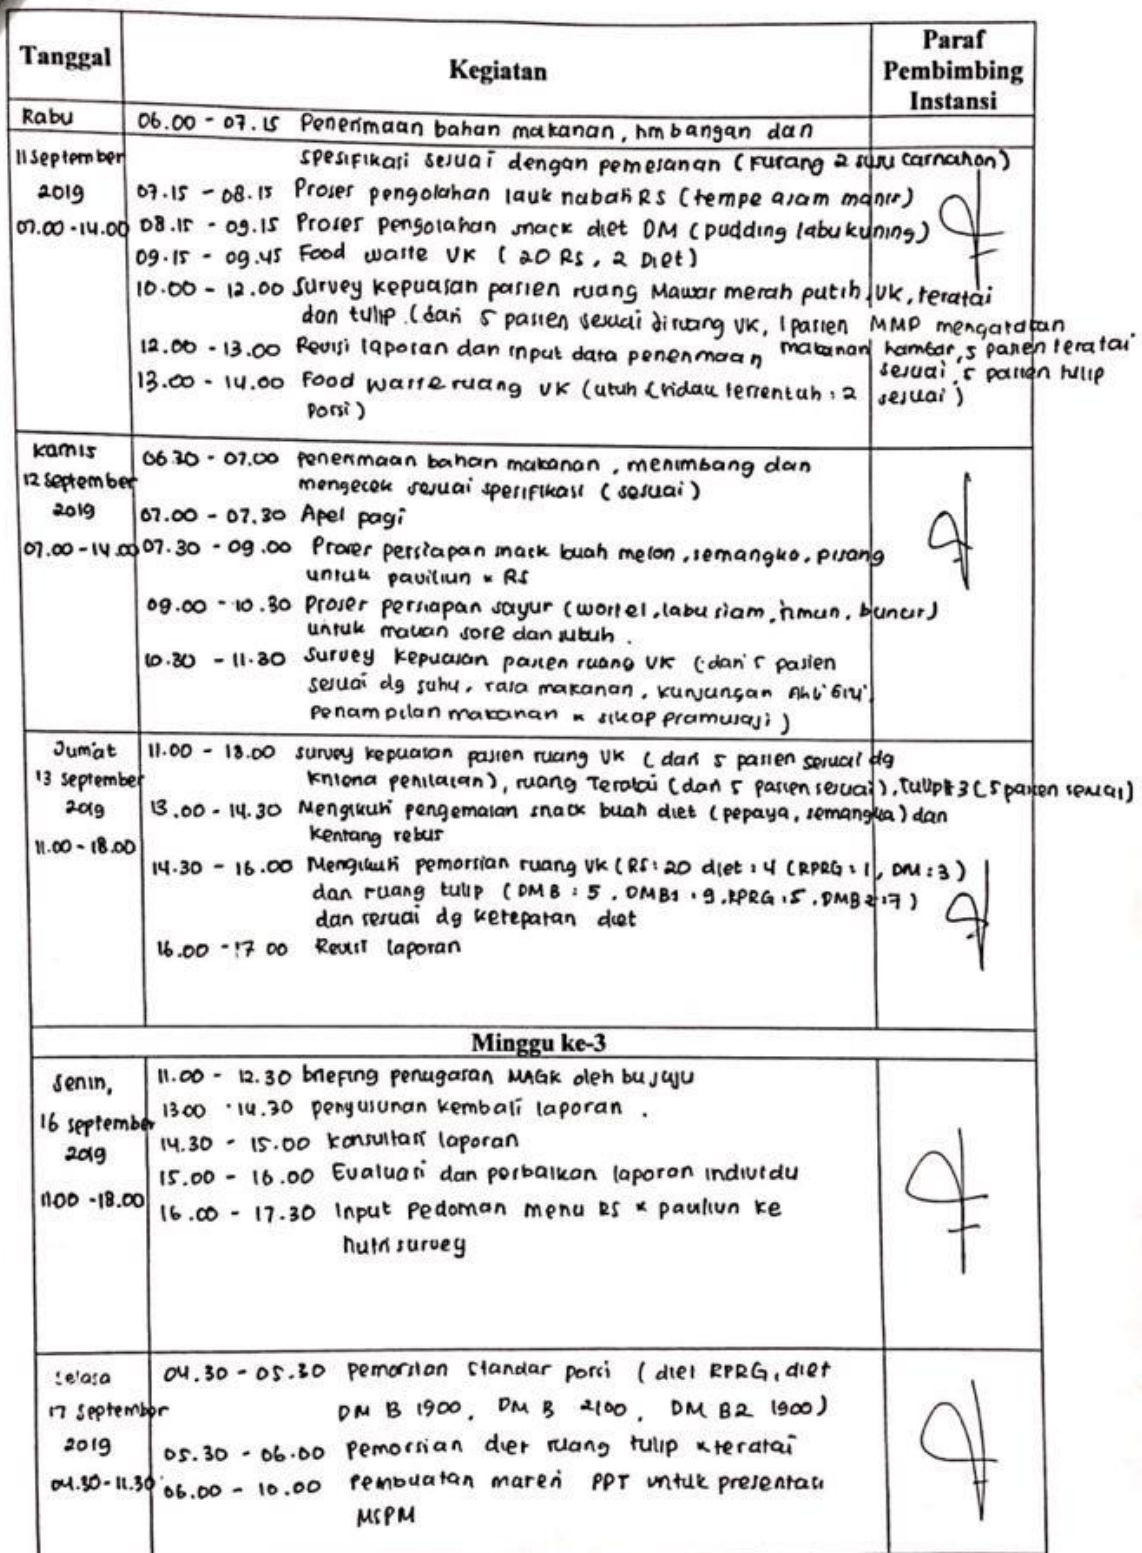 Tanggal Kegiatan Paraf Pembimbing Instansi
Rabu 06.00 - 07.15 Penerimaan bahan makanan, timbangan dan
11 September spesifikasi sesuai dengan pemesanan (kurang 2 susu carnation)
2019 07.15 - 08.15 Proses pengolahan lauk nabati RS (tempe asam manis)
07.00 - 14.00 08.15 - 09.15 Proses pengolahan snack diet DM (pudding labu kuning)
09.15 - 09.45 Food waste VK (20 RS, 2 Diet)
10.00 - 12.00 Survey kepuasan pasien ruang Mawar merah putih, VK, teratai
dan tulip. (dari 5 pasien sesuai diruang VK, 1 pasien MMP mengatakan
12.00 - 13.00 Revisi laporan dan input data penerimaan makanan hambar, 5 pasien teratai
sesuai, 5 pasien tulip
13.00 - 14.00 Food waste ruang VK (utuh (tidak tersentuh : 2 sesuai)
Porsi)
Kamis 06.30 - 07.00 penerimaan bahan makanan, menimbang dan
12 September mengecek sesuai spesifikasi (sesuai)
2019 07.00 - 07.30 Apel pagi
07.00 - 14.00 07.30 - 09.00 Proses persiapan snack buah melon, semangka, pisang
untuk paviliun & RS
09.00 - 10.30 Proses persiapan sayur (wortel, labu siam, timun, buncis)
untuk makan sore dan subuh.
10.30 - 11.30 Survey kepuasan pasien ruang VK (dari 5 pasien
sesuai dg suhu, rasa makanan, kunjungan Ahli Gizi,
Penampilan makanan & sikap pramusaji)
Jumat 11.00 - 13.00 survey kepuasan pasien ruang VK (dari 5 pasien sesuai dg
13 September kriteria penilaian), ruang Teratai (dari 5 pasien sesuai), Tulip 3 (5 pasien sesuai)
2019 13.00 - 14.30 Mengikuti pengemasan snack buah diet (pepaya, semangka) dan
kentang rebus
11.00 - 18.00
14.30 - 16.00 Mengikuti pemorsian ruang VK (RS : 20 diet : 4 (RPRG : 1, DM : 3)
dan ruang tulip (DM B : 5, DMB1 : 9, RPRG : 5, DMB2 : 7)
dan sesuai dg ketepatan diet
16.00 - 17 00 Revisi laporan
Minggu ke-3
Senin, 11.00 - 12.30 briefing penugasan MAGK oleh bu juju
16 september 13 00 - 14.30 penyusunan kembali laporan.
2019 14.30 - 15.00 konsultasi laporan
15.00 - 16.00 Evaluasi dan perbaikan laporan individu
11.00 - 18.00 16.00 - 17.30 Input Pedoman menu RS & paviliun ke
Nutri survey
Selasa 04.30 - 05.30 pemorsian Standar porsi (diet RPRG, diet
17 September DM B 1900, DM B 2100, DM B2 1900)
2019 05.30 - 06.00 pemorsian diet ruang tulip & teratai
04.30 - 11.30 06.00 - 10.00 Pembuatan materi PPT untuk presentasi
MSPM